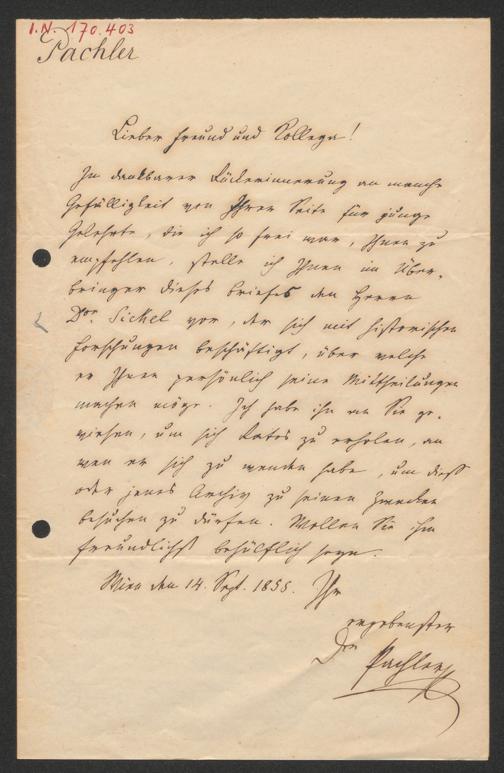 I.N. 170.403
Pachler
Lieber Freund und Kollega!
In dankbarer Rückerinnerung an manche
Gefälligkeit von Ihrer Seite für junge
Gelehrte, die ich so frei war, Ihnen zu
empfehlen, stelle ich Ihnen im Über-
bringer dieses Briefes den Herrn
Dor Sickel vor, der sich mit historischen
Forschungen beschäftigt, über welche
er Ihnen persönlich seine Mittheilungen
machen möge. Ich habe ihn an Sie ge-
wiesen, um sich Rates zu erholen, an
wen er sich zu wenden habe, um dieß
oder jenes Archiv zu seinen Zwecken
besuchen zu dürfen. Wollen Sie ihm
freundlichst behülflich seyn.
Wien den 14. Sept. 1855. Ihr
ergebenster
Dor Pachler